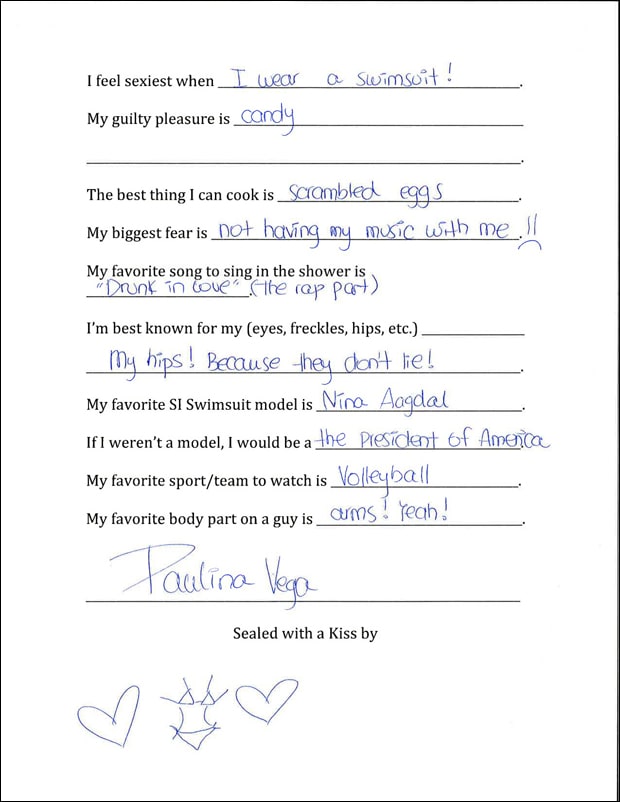 I feel sexiest when I wear a swimsuit!.
My guilty pleasure is candy
.
The best thing I can cook is scrambled eggs.
My biggest fear is not having my music with me.!!
My favorite song to sing in the shower is
"Drunk in Love". (the rap part)
I'm best known for my (eyes, freckles, hips, etc.)
My hips! Because they don't lie!.
My favorite SI Swimsuit model is Nina Aagdal.
If I weren't a model, I would be a the President of America.
My favorite sport/team to watch is Volleyball.
My favorite body part on a guy is arms! Yeah!.
Paulina Vega
Sealed with a Kiss by